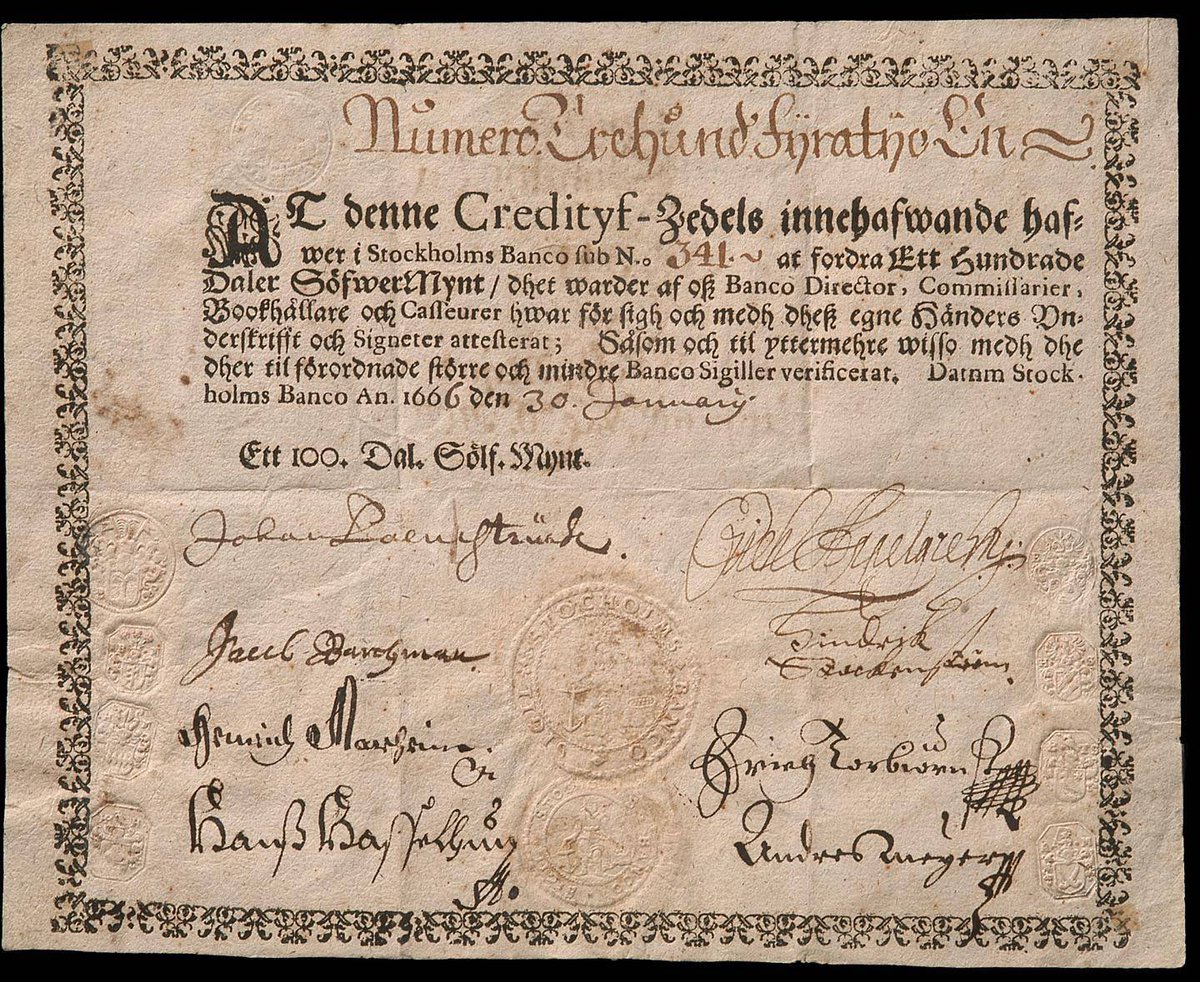 Numero. Trehund fÿratÿo En
AT denne Credityf-Zedels innehafwande haf-
wer i Stockholms Banco sub N.o 341. ~ at fordra Ett Hundrade
Daler SöfwerMynt / dhet warder af oß Banco Director, Commissarier,
Bookhållare och Casseurer hwar för sigh och medh dheß egne Händers Vn-
derskrifft och Signeter attesterat; Såsom och til yttermehre wisso medh dhe
dher til förordnade större och mindre Banco Sigiller verificerat. Datum Stock-
holms Banco An. 1666 den 30. January.
Ett 100. Dal. Sölf. Mynt.
Johan Palmstruck.
Jacob Barchman
Hindrik
Henrich
Erich Torbiörn
Hanß
Andres Meÿer
STOCHOLMS BANCO